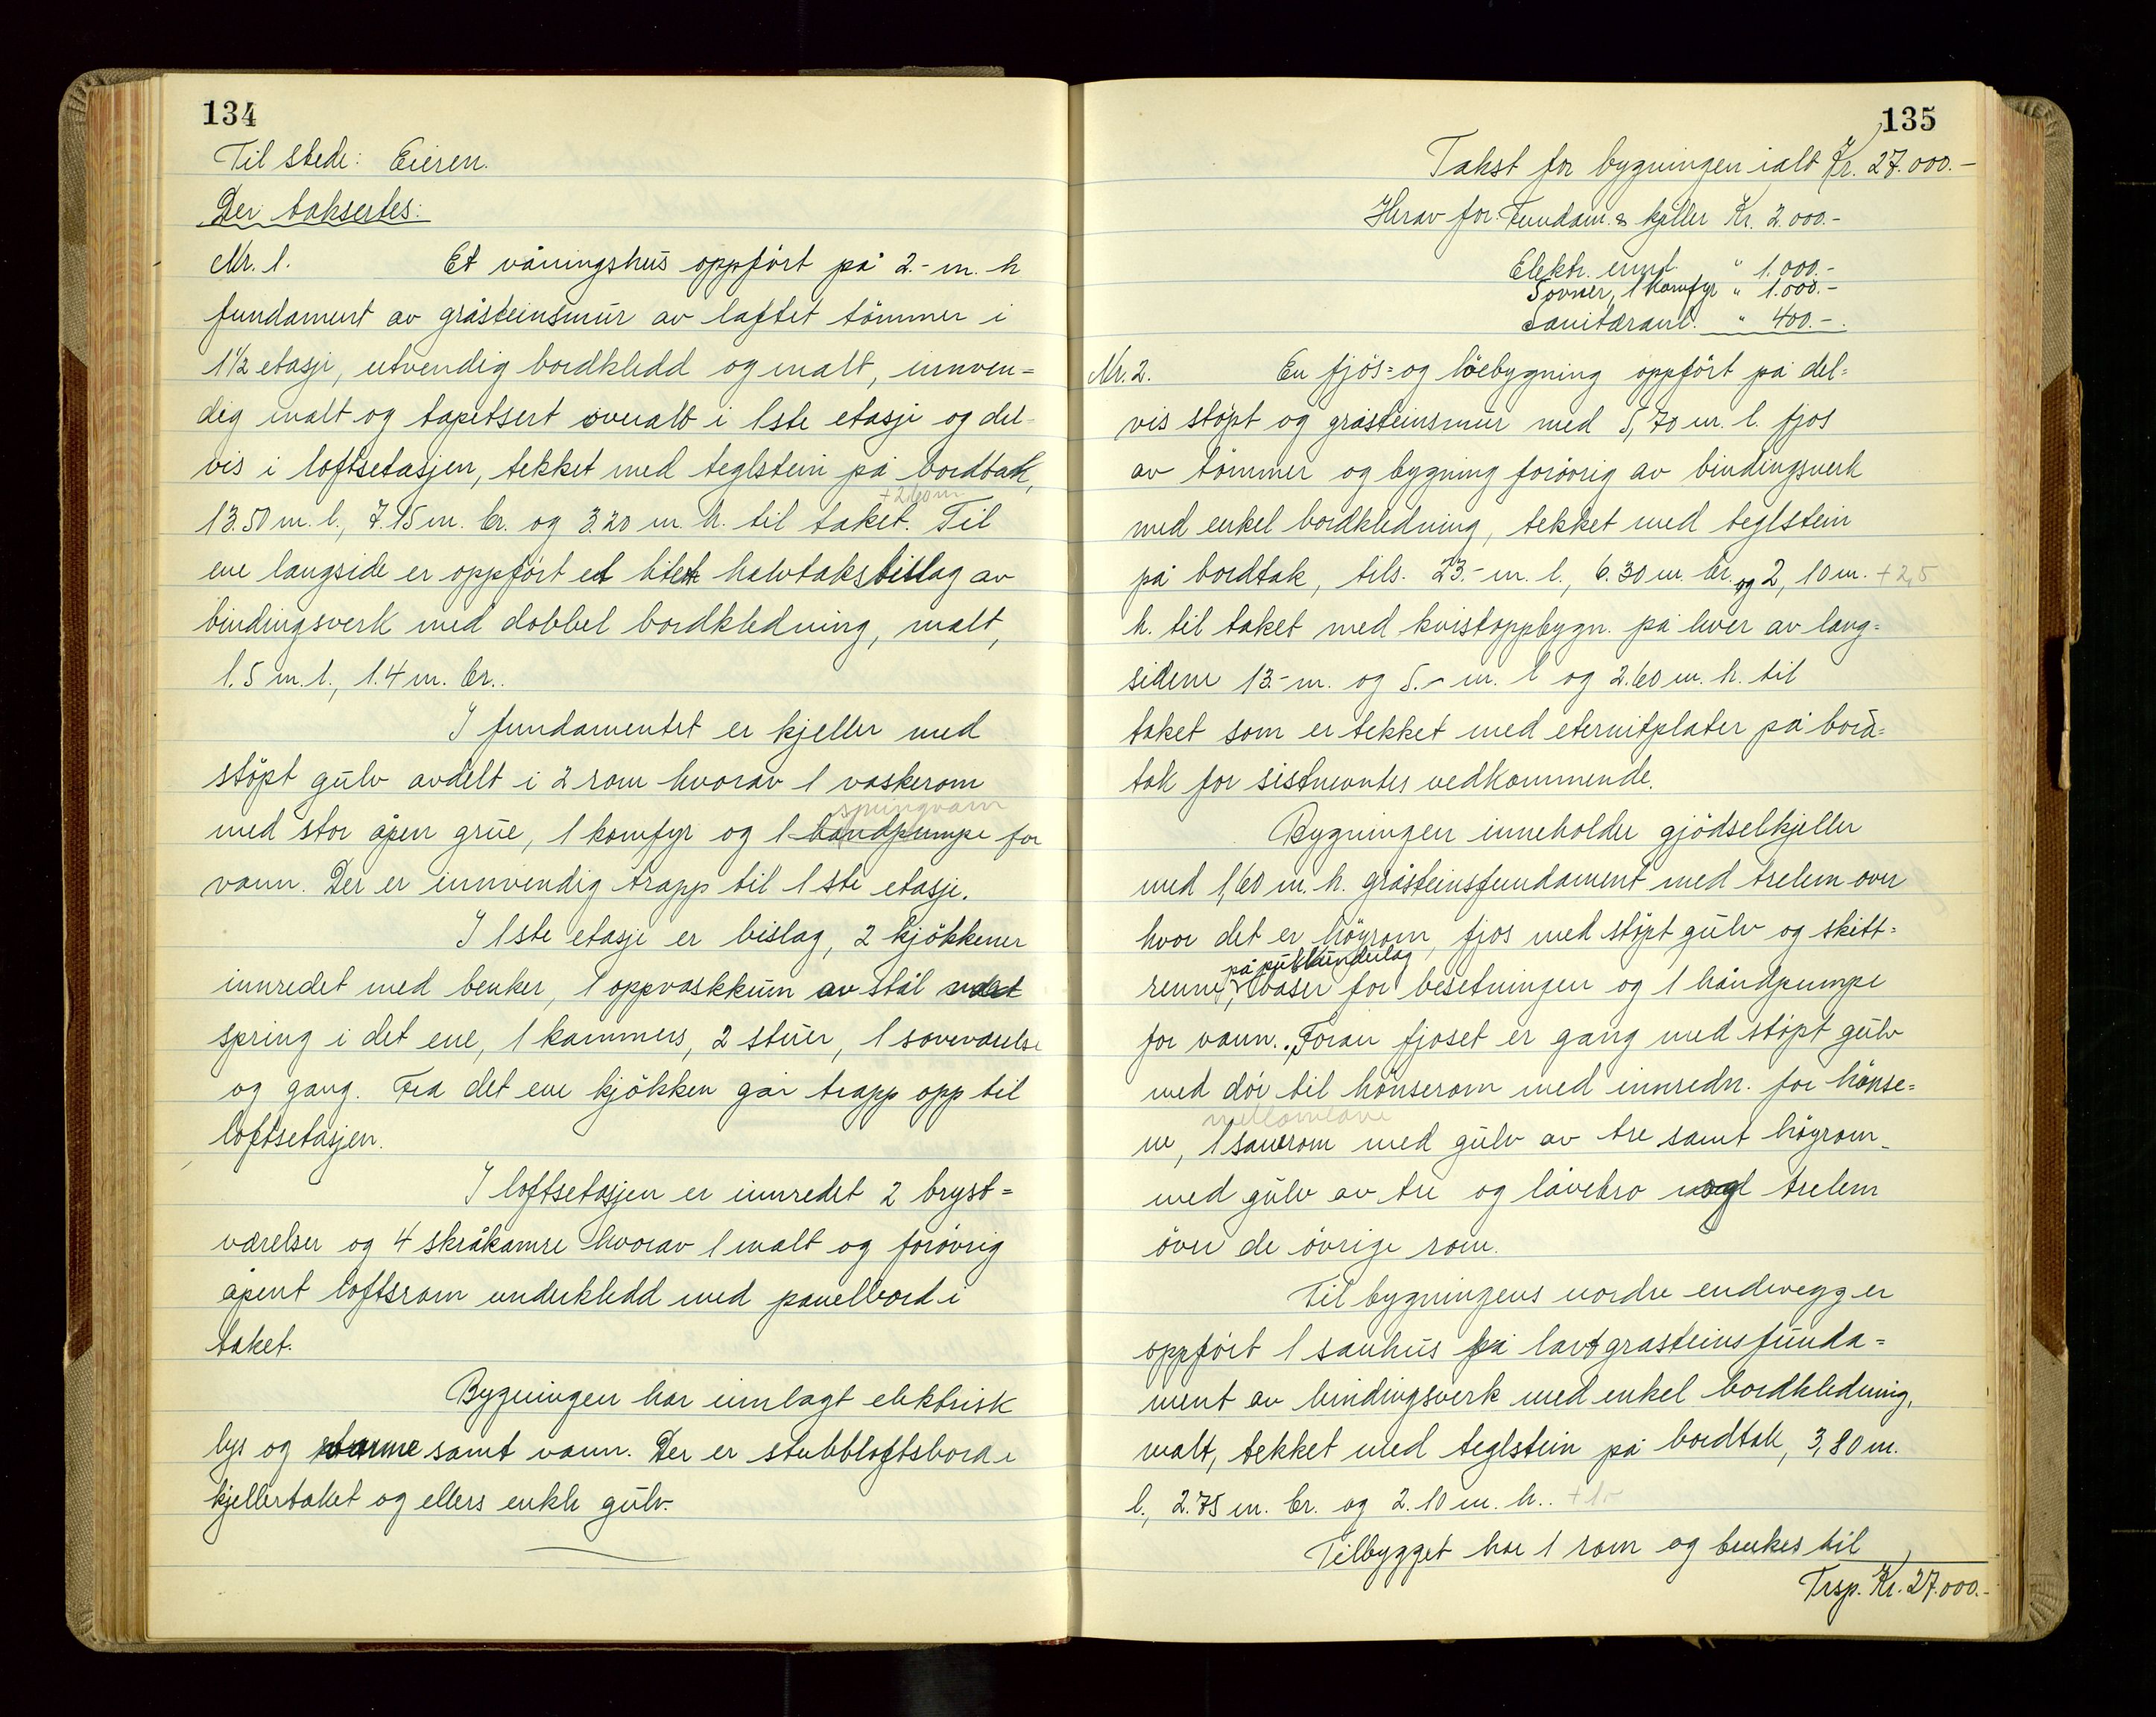 134
Til stede: Eieren.
Der taksertes:
Nr. 1. Et våningshus oppført på 2.- m. h
fundament av gråsteinsmur av laftet tømmer i
1 1/2 etasje, utvendig bordkledd og malt, innven=
dig malt og tapetsert overalt i 1ste etasje og del-
vis i loftsetasjen, tekket med teglstein på bordtak,
+2.60m
13.50 m. l., 7.15 m. br. og 3.20 m. h. til taket. Til
ene langside er oppført et litet halvtaksbislag av
bindingsverk med dobbel bordkledning, malt,
1.5 m. l., 1.4 m. br..
I fundamentet er kjeller med
støpt gulv avdelt i 2 rom hvorav 1 vaskerom
springvann
med stor åpen grue, 1 komfyr og 1 handpumpe for
vann. Der er innvendig trapp til 1ste etasje.
I 1ste etasje er bislag, 2 kjøkkener
innredet med benker, 1 oppvaskkum av stål med
spring i det ene, 1 kammers, 2 stuer, 1 soveværelse
og gang. Fra det ene kjøkken går trapp opp til
loftsetasjen.
I loftsetasjen er innredet 2 bryst=
værelser og 4 skråkamre hvorav 1 malt og forøvrig
åpent loftsrom underkledd med panelbord i
taket.
Bygningen har innlagt elektrisk
lys og varme samt vann. Der er stubbloftsbord i
kjellertaket og ellers enkle gulv.
135
Takst for bygningen ialt Kr. 27.000.-
Herav for: Fundam. & kjeller Kr. 2.000.-
Elektr. innt. " 1.000.-
5 ovner, 1 komfyr " 1.000.-
Sanitæranl. " 400.-
Nr. 2. En fjøs= og løebygning oppført på del=
vis støpt og gråsteinsmur med 5,70 m. l. fjøs
av tømmer og bygning forøvrig av bindingsverk
med enkel bordkledning, tekket med teglstein
på bordtak, tils. 23.- m. l., 6.30 m. br. og 2,10 m. +2,5
h. til taket med kvistoppbygn. på hver av lang=
sidene 13.- m. og 5.- m. l og 2.60 m. h. til
taket som er tekket med eternitplater på bord=
tak for sistnevntes vedkommende.
Bygningen inneholder gjødselkjeller
med 1,60 m. h. gråsteinsfundament med trelem over
hvor det er høyrom, fjøs med støpt gulv og skitt=
på pukkunderlag
renne, båser for besetningen og 1 håndpumpe
for vann. Foran fjøset er gang med støpt gulv
med dør til hønserom med innredn. for hønse=
mellomlåve
ne, 1 sauerom med gulv av tre samt høyrom
med gulv av tre og låvebro og trelem
over de øvrige rom.
Til bygningens nordre endevegg er
oppført 1 sauhus på lavt gråsteinsfunda=
ment av bindingsverk med enkel bordkledning,
malt, tekket med teglstein på bordtak, 3,80 m.
l., 2.75 m. br. og 2.10 m. h..
Tilbygget har 1 rom og brukes til
Trsp. Kr. 27.000.-